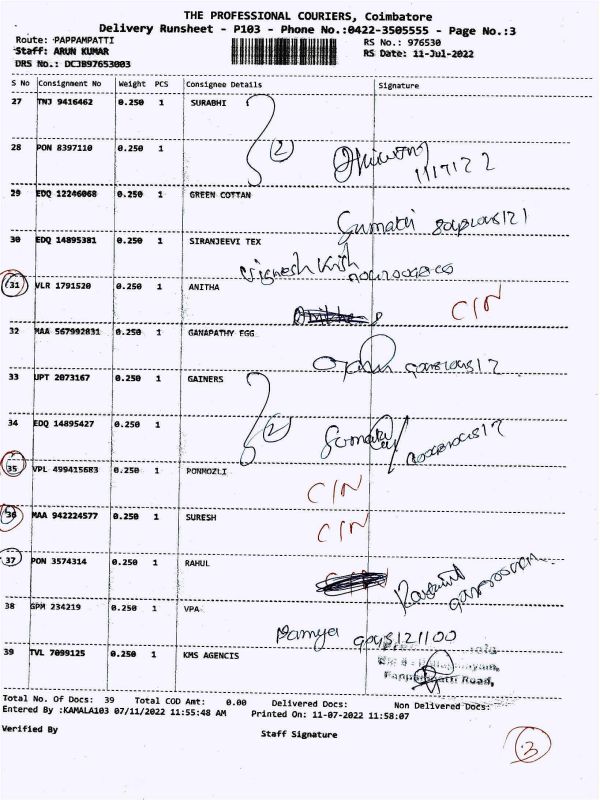 THE PROFESSIONAL COURIERS, Coimbatore
Delivery Runsheet - P103 - Phone No.:0422-3505555 - Page No.:3
Route: PAPPAMPATTI RS No.: 976530
Staff: ARUN KUMAR RS Date: 11-Jul-2022
DRS No.: DCJB97653003
S No Consignment No Weight PCS Consignee Details Signature
27 TNJ 9416462 0.250 1 SURABHI
2
28 PON 8397110 0.250 1
11/7/22
29 EDQ 12246068 0.250 1 GREEN COTTAN
Sumathi
30 EDQ 14895381 0.250 1 SIRANJEEVI TEX
Vignesh
31 VLR 1791520 0.250 1 ANITHA
C/N
32 MAA 567992831 0.250 1 GANAPATHY EGG
33 UPT 2073167 0.250 1 GAINERS
2
34 EDQ 14895427 0.250 1
35 VPL 499415683 0.250 1 PONMOZLI
C/N
36 MAA 942224577 0.250 1 SURESH
C/N
37 PON 3574314 0.250 1 RAHUL
38 GPM 234219 0.250 1 VPA
Ramya
39 TVL 7099125 0.250 1 KMS AGENCIS
Road,
Total No. Of Docs: 39 Total COD Amt: 0.00 Delivered Docs: Non Delivered Docs:
Entered By :KAMALA103 07/11/2022 11:55:48 AM Printed On: 11-07-2022 11:58:07
Verified By Staff Signature
3